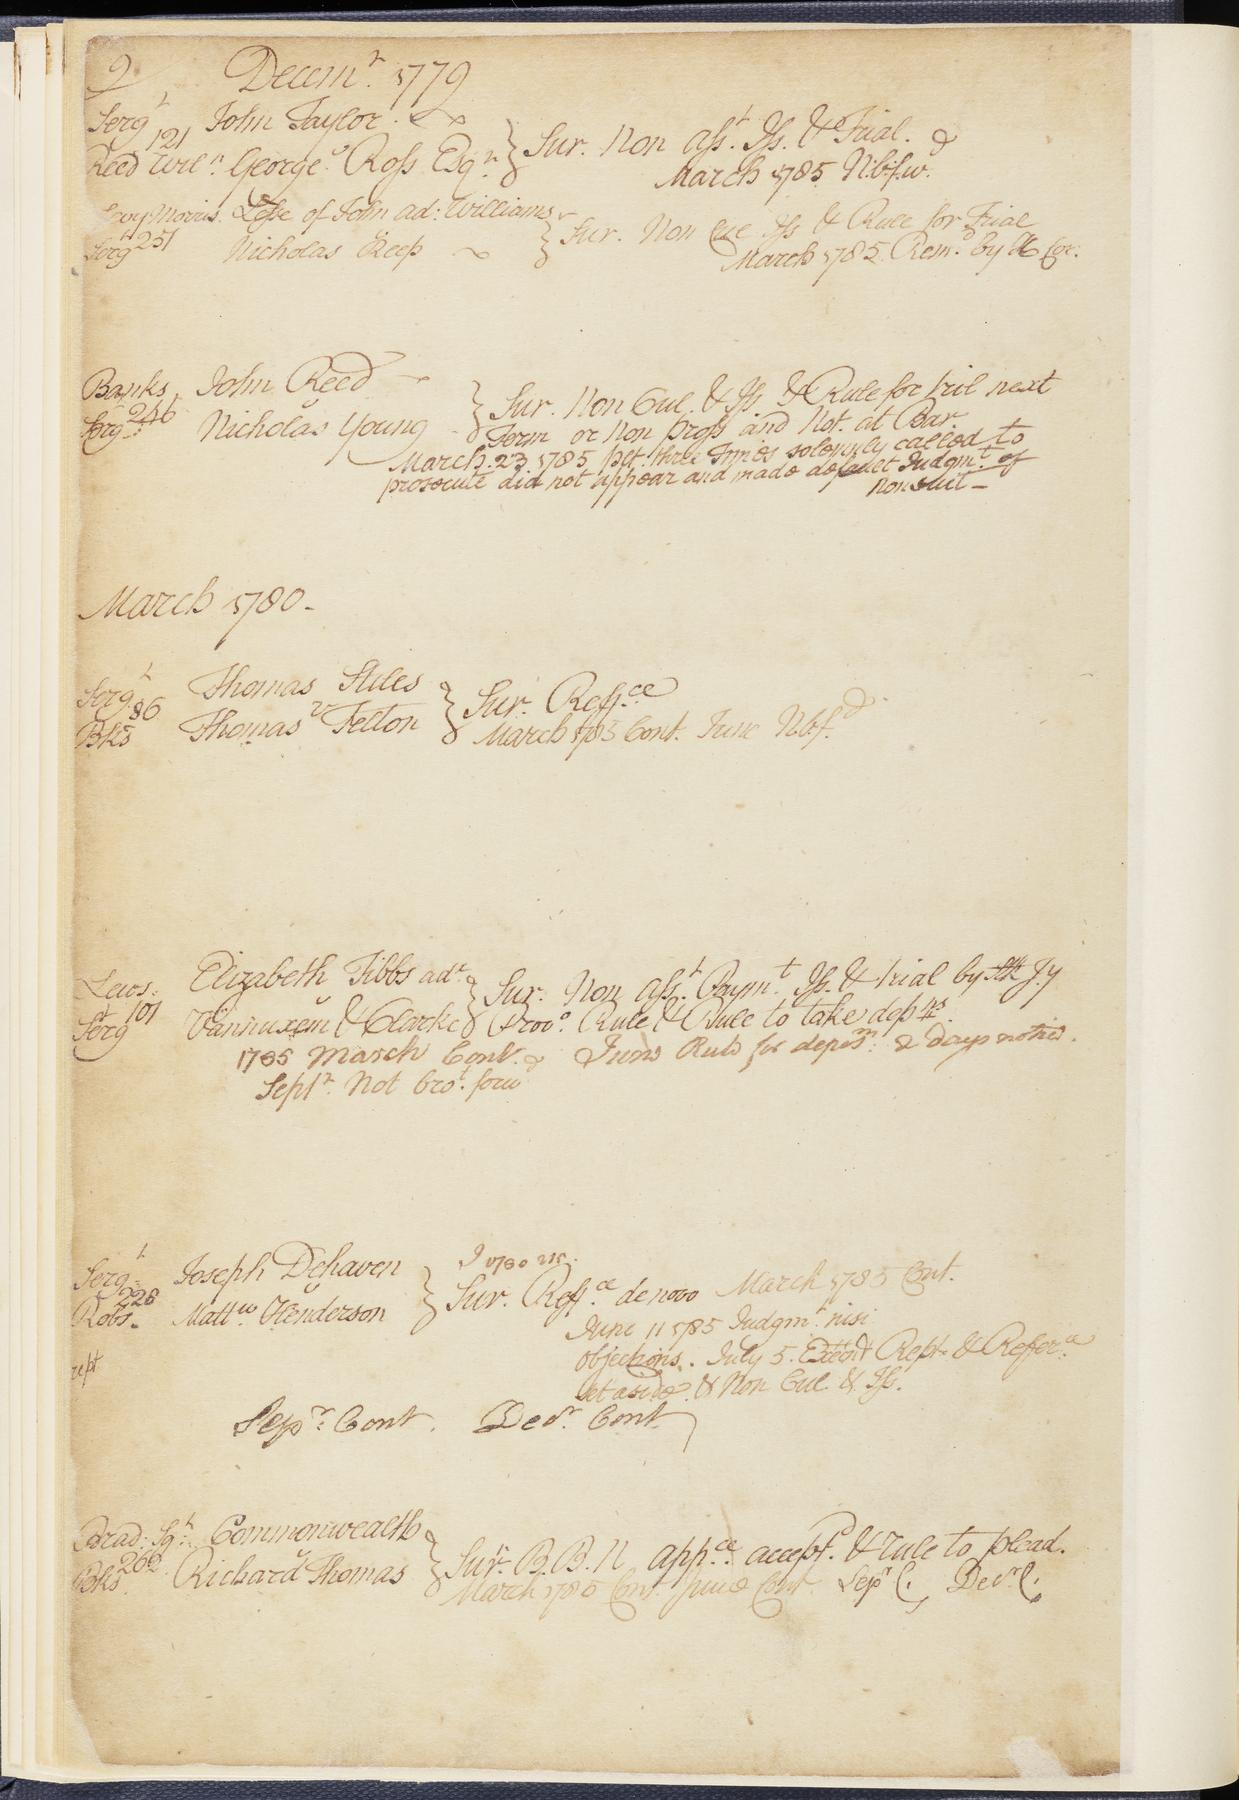 2 Decem^r. 1779
Serg^t John Taylor
121 v
Reed Wil^n. George Ross Esq^r } Sur. Non Ass^t. Iss. & Trial. &
March 1785 N.b.f.w.
Levy Morris. Lesse of John ad: Williams
Serg^t 251 Nicholas Keep } Sur. Non Cul Iss & Rule for Trial
March 1785 Rem^d. by H Cor:
Banks John Reed
246 v
Serg^t Nicholas Young } Sur. Non Cul. & Iss & Rule for tril next
Term or Non Pross and Not. at Bar.
March. 23. 1785 plt. three Times solemnly called to
prosecute did not appear and made defauet Judgm^t. of
Nonsuit -
March 1780 -
Serg^t Thomas Stiles
86 v
Bks Thomas Felton } Sur. Reff^ce
March 1785 Cont. June Nbf^d
Lews: Elizabeth Tibbs ad^r.
101 v
Serg^t Vannuxem & Clarke } Sur. Non Ass^t. Paym^t. Iss. & trial by Jy
Prov^o. Rule & Rule to take dep^ns.
1785 March Cont. & June Rule for depos^n: 2 days notice.
Sept^r. Not bro^t. forw
Serg^t Joseph Dehaven
228 v
Robs. Matt^w Henderson } Sur. Reff^ce de novo March 1785 Cont.
June 11 1785 Judgm^t. nisi
rept objections. July 5. Rept. & Refer^ce
set aside & Non Cul. & Iss.
Sep^r: Cont. Dec^r. Cont
Brad: Sg^t: Commonwealth
262 v
Bks Richard Thomas } Sur. B. B. N app^ce. accept^d. & rule to plead.
March 1785 Cont. June Cont. Sep^r C. Dec^r C.